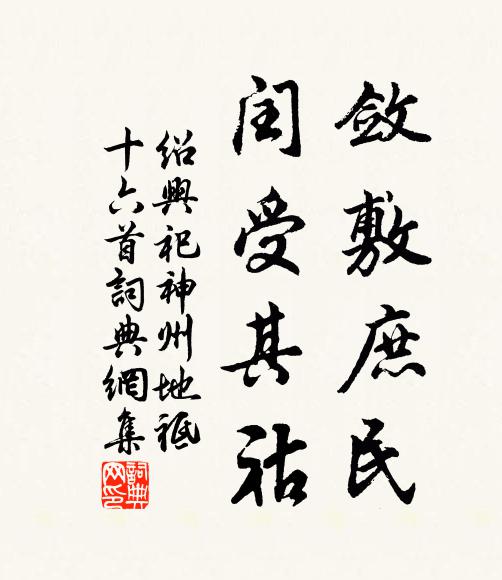 斂敷庶民
閏受其祜
紹興祀神州地祇
十六首詞典網集
詞典
网印